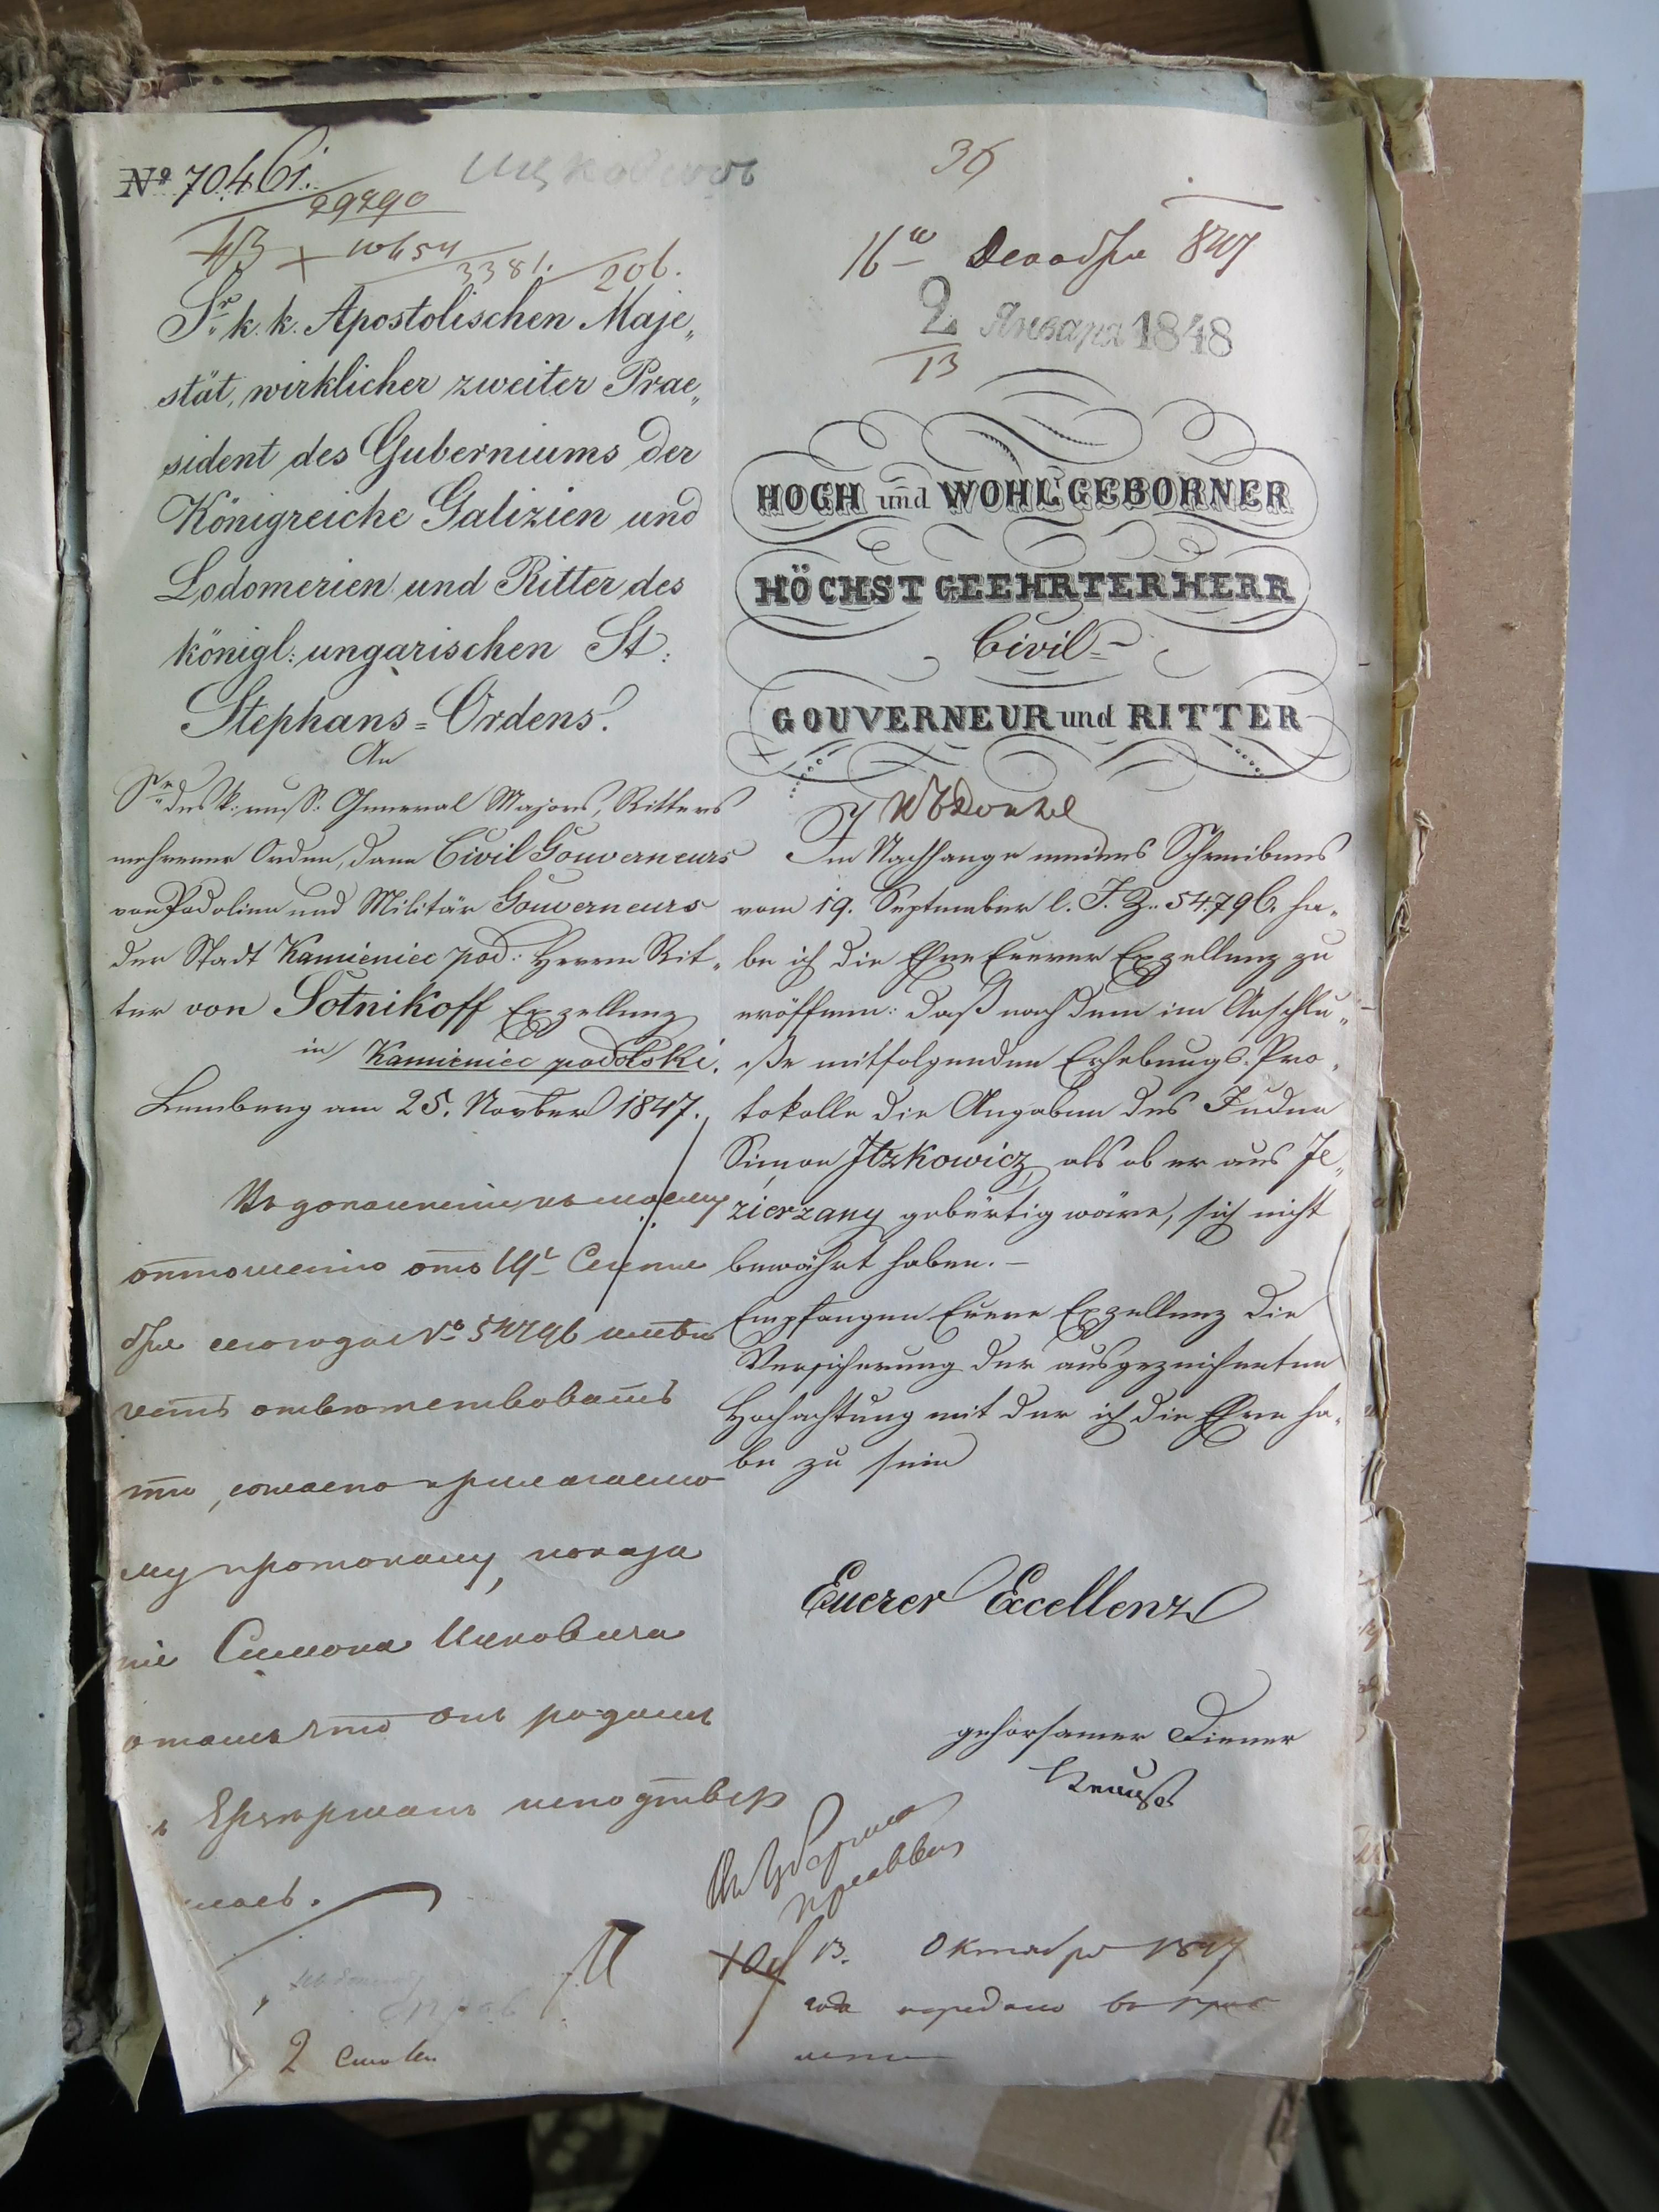 № 70461.
29290
Ицковичъ
36
10654
3381.
206.
16го Декабря 847
2 Января 1848
13
Sr. k. k. Apostolischen Maje„
stät, wirklicher zweiter Prae„
sident des Guberniums der
Königreiche Galizien und
Lodomerien und Ritter des
königl: ungarischen St:
Stephans=Ordens.
An
Sr. des k: russ: General Majors, Ritters
mehrerer Orden, dann Civil Gouverneurs
von Podolien und Militär Gouverneurs
der Stadt Kamieniec pod: Herrn Rit„
ter von Sotnikoff Exzellenz
in Kamieniec podolski.
Lemberg am 25. November 1847.
HOCH und WOHLGEBORNER
HÖCHST GEEHRTER HERR
Civil=
GOUVERNEUR und RITTER
Im Nachhange meines Schreibens
vom 19. September l. J. Z. 54796. ha„
be ich die Ehre Euerer Exzellenz zu
eröffnen: daß nach dem im Anschlu„
ße mitfolgenden Erhebungs-Pro„
tokolle die Angaben des Juden
Simon Itzkowicz, als ob er aus Je„
zierzany gebürtig wäre, sich nicht
bewährt haben. –
Empfangen Euere Exzellenz die
Versicherung der ausgezeichneten
Hochachtung mit der ich die Ehre ha„
be zu sein
Euerer Excellenz
gehorsamer Diener
Въ дополненіе къ моему
отношенію отъ 19го Сентя
бря сего года № 54796 имѣю
честь отвѣтствовать
что, согласно прилагаемо
му протоколу, показа
ніе Симона Ицковича
что онъ родомъ
неподтвер
лось.
13. Октября 1847
года передано въ
2 Стол